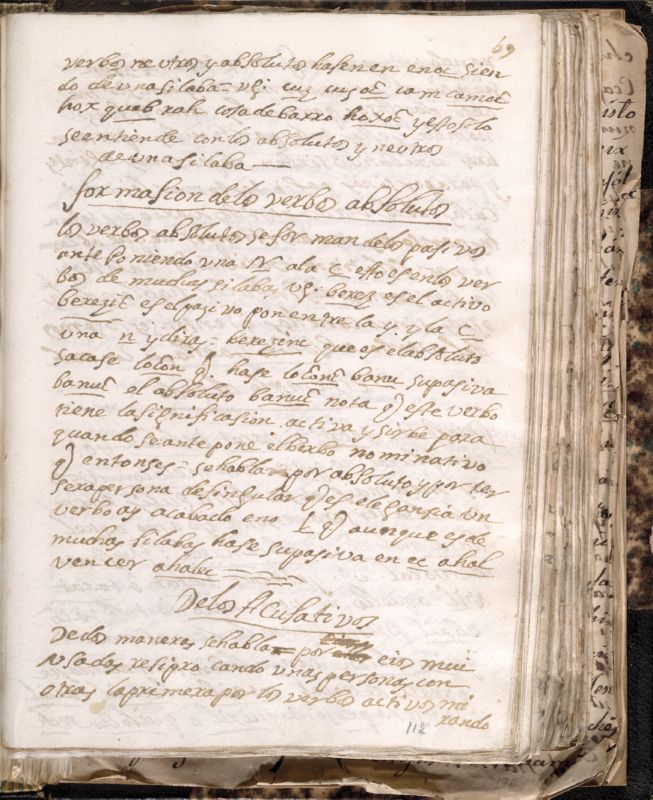 69
verbos neutros y absolutos hasen en enec sien
do de una silaba = vg: cuz cuzoc̄ cam camoc̄
hox quebrah cosa de barro hoxoc̄ y esto solo
se entiende con los absolutos y neutros
de una silaba
formasion de los verbos absolutos
los verbos absolutos se forman de los pasivos
ante poniendo una N. a la C esto es en los ver
bos de muchas silabas vg: berez es el activo
berezic̄ es el pasivo pon entre la y. y la C
una n y diras = berezinc que es el absoluto
sacase locon q̄. hase loconc̄ banu su pasiva
banuc̄ el absoluto banuc̄ nota q̄ este verbo
tiene la significasion activa y sirbe para
quando se ante pone el berbo nominativo
q̄ entonses = se habla por absoluto y por ter
sera persona de singular q̄ es elegansia un
verbo ay acabado en o q̄ aunque es de
muchas silabas hase su pasiva en ec ahal
vencer ahalec
De los Acusativos
De dos maneras se habla por eios mui
usadas resiprocando unas personas con
otras la primera por los verbos activos mi
rando
112